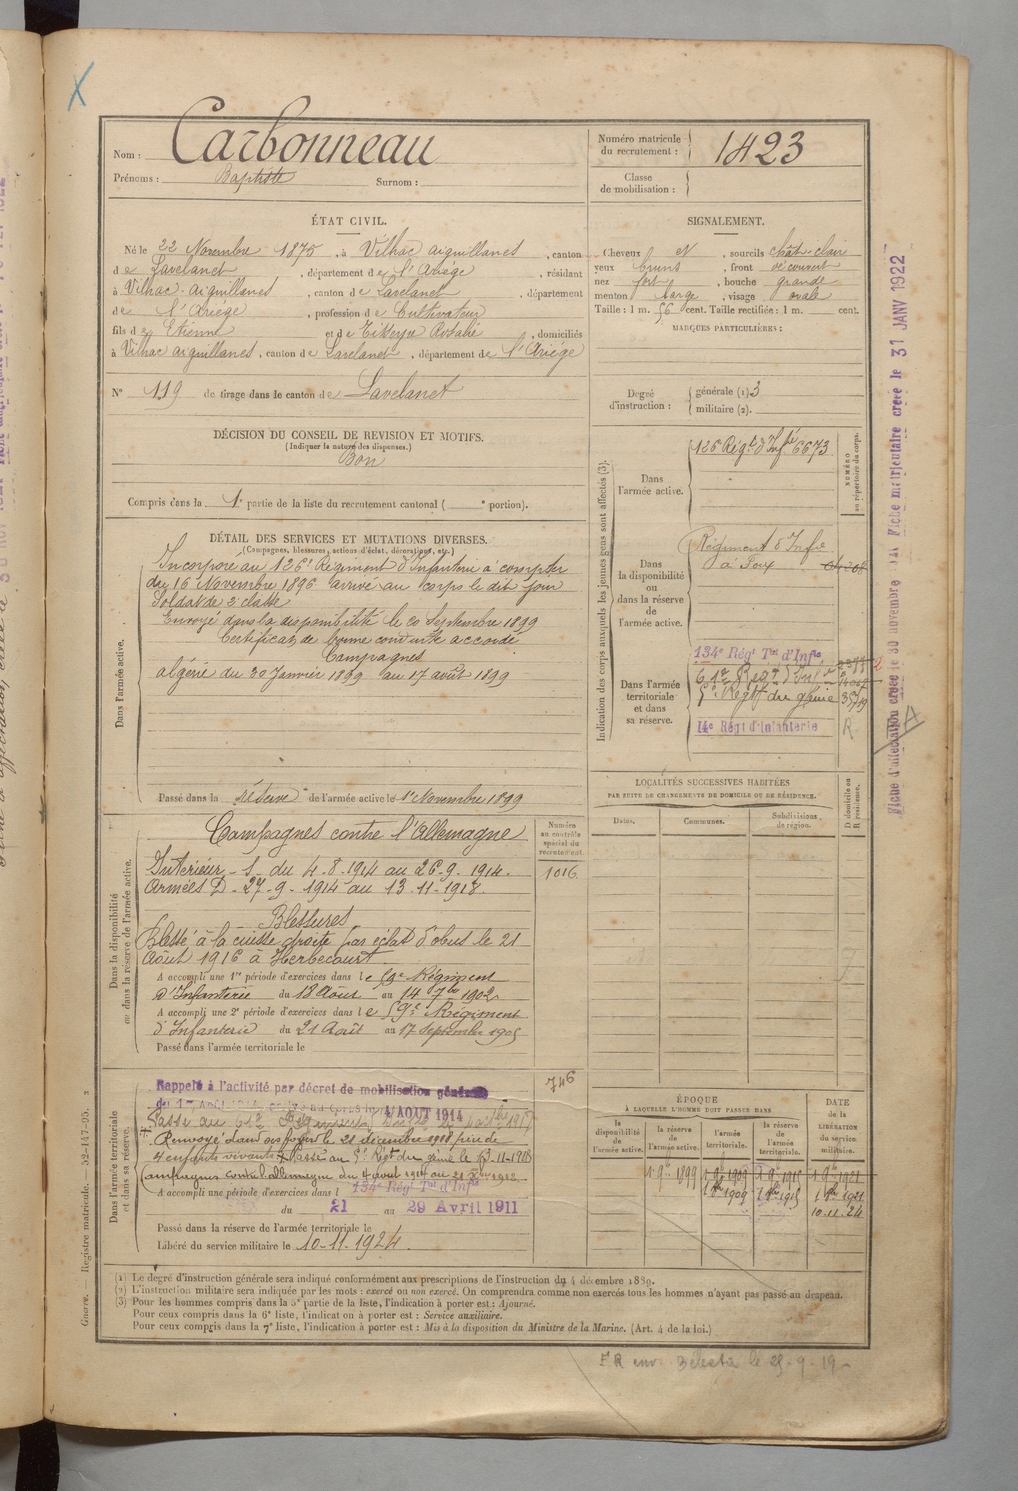 Nom : Carbonneau
Prénoms : Baptiste Surnom :
Numéro matricule
du recrutement : 1423
Classe
de mobilisation :
ÉTAT CIVIL.
Né le 22 Novembre 1875, à Vilhac aiguillanes, canton
de Lavelanet, département de l'Ariège, résidant
à Vilhac-aiguillanes, canton de Lavelanet, département
de l'Ariège, profession de Cultivateur
fils d'e Etienne et de Rosalie, domiciliés
à Vilhac aiguillanes, canton de Lavelanet, département de l'Ariège
N° 119 de tirage dans le canton de Lavelanet
DÉCISION DU CONSEIL DE REVISION ET MOTIFS.
(Indiquer la nature des dispenses.)
Bon
Compris dans la 1e partie de la liste du recrutement cantonal ( e portion).
SIGNALEMENT.
Cheveux N, sourcils chât-clair
yeux bruns, front découvert
nez fort, bouche grande
menton large, visage ovale
Taille : 1 m. 56 cent. Taille rectifiée : 1 m. cent.
MARQUES PARTICULIÈRES :
Degré
d'instruction :
générale (1) 3
militaire (2).
DÉTAIL DES SERVICES ET MUTATIONS DIVERSES.
(Campagnes, blessures, actions d'éclat, décorations, etc.)
Dans l'armée active.
Incorporé au 126e Régiment d'Infanterie à compter
du 16 Novembre 1896 arrivé au corps le dit jour
Soldat de 2e classe
Envoyé dans la disponibilité le 20 Septembre 1899
Certificat de bonne conduite accordé
Campagnes
algérie du 30 Janvier 1899 au 17 août 1899
Passé dans la réserve de l'armée active le 1er Novembre 1899
Dans la disponibilité
ou dans la réserve de l'armée active.
Campagnes contre l'Allemagne
Intérieur - S - du 4-8-1914 au 26-9-1914.
Armées D - 27-9-1914 au 13-11-1918
Blessures
Blessé à la cuisse droite par éclat d'obus le 21
Août 1916 à Herbecourt
A accompli une 1re période d'exercices dans le 59e Régiment
d'Infanterie du 18 Août au 14 7bre 1902
A accompli une 2e période d'exercices dans le 59e Régiment
d'Infanterie du 21 Août au 17 Septembre 1905
Passé dans l'armée territoriale le
Numéro
au contrôle
spécial du
recrutement.
1016
746
Dans l'armée territoriale
et dans sa réserve.
Rappelé à l'activité par décret de mobilisation générale
du 1er Août 1914 4 AOUT 1914
Passé au 61e
Renvoyé dans ses foyers le 21 décembre 1918 père de
4 enfants vivants Passé au Régt du génie le 13-11-1918
Campagnes contre l'allemagne du 4 août 1914 au
A accompli une période d'exercices dans l 134e Régt Tal d'Infie
du 21 au 29 Avril 1911
Passé dans la réserve de l'armée territoriale le
Libéré du service militaire le 10-11-1924.
Indication des corps auxquels les jeunes gens sont affectés (3).
NUMÉRO
au répertoire du corps.
Dans
l'armée active.
126 Régt d'Infie 6673
Dans
la disponibilité
ou dans la réserve
de
l'armée active.
Régiment d'Infie
à Foix
Dans l'armée
territoriale
et dans
sa réserve.
134e Régt Tal d'Infie
61e Régt d'Infie
Régt du génie
14e Régt d'Infanterie
R
LOCALITÉS SUCCESSIVES HABITÉES
PAR SUITE DE CHANGEMENTS DE DOMICILE OU DE RÉSIDENCE.
Dates. Communes. Subdivisions
de région.
D domicile ou
R résidence.
ÉPOQUE
À LAQUELLE L'HOMME DOIT PASSER DANS
la
disponibilité
de
l'armée active.
la réserve
de
l'armée active.
l'armée
territoriale.
la réserve
de
l'armée
territoriale.
DATE
de la
LIBÉRATION
du service
militaire.
1 9bre 1899 1 9bre 1909 1 9bre 1915 1 9bre 1921
10-11-24
(1) Le degré d'instruction générale sera indiqué conformément aux prescriptions de l'instruction du 4 décembre 1889.
(2) L'instruction militaire sera indiquée par les mots : exercé ou non exercé. On comprendra comme non exercés tous les hommes n'ayant pas passé au drapeau.
(3) Pour les hommes compris dans la 5e partie de la liste, l'indication à porter est : Ajourné.
Pour ceux compris dans la 6e liste, l'indication à porter est : Service auxiliaire.
Pour ceux compris dans la 7e liste, l'indication à porter est : Mis à la disposition du Ministre de la Marine. (Art. 4 de la loi.)
Guerre. Registre matricule. — 52-147-95.
Fiche matriculaire créée le 31 JANV 1922
Fiche d'affectation créée le 30 novembre